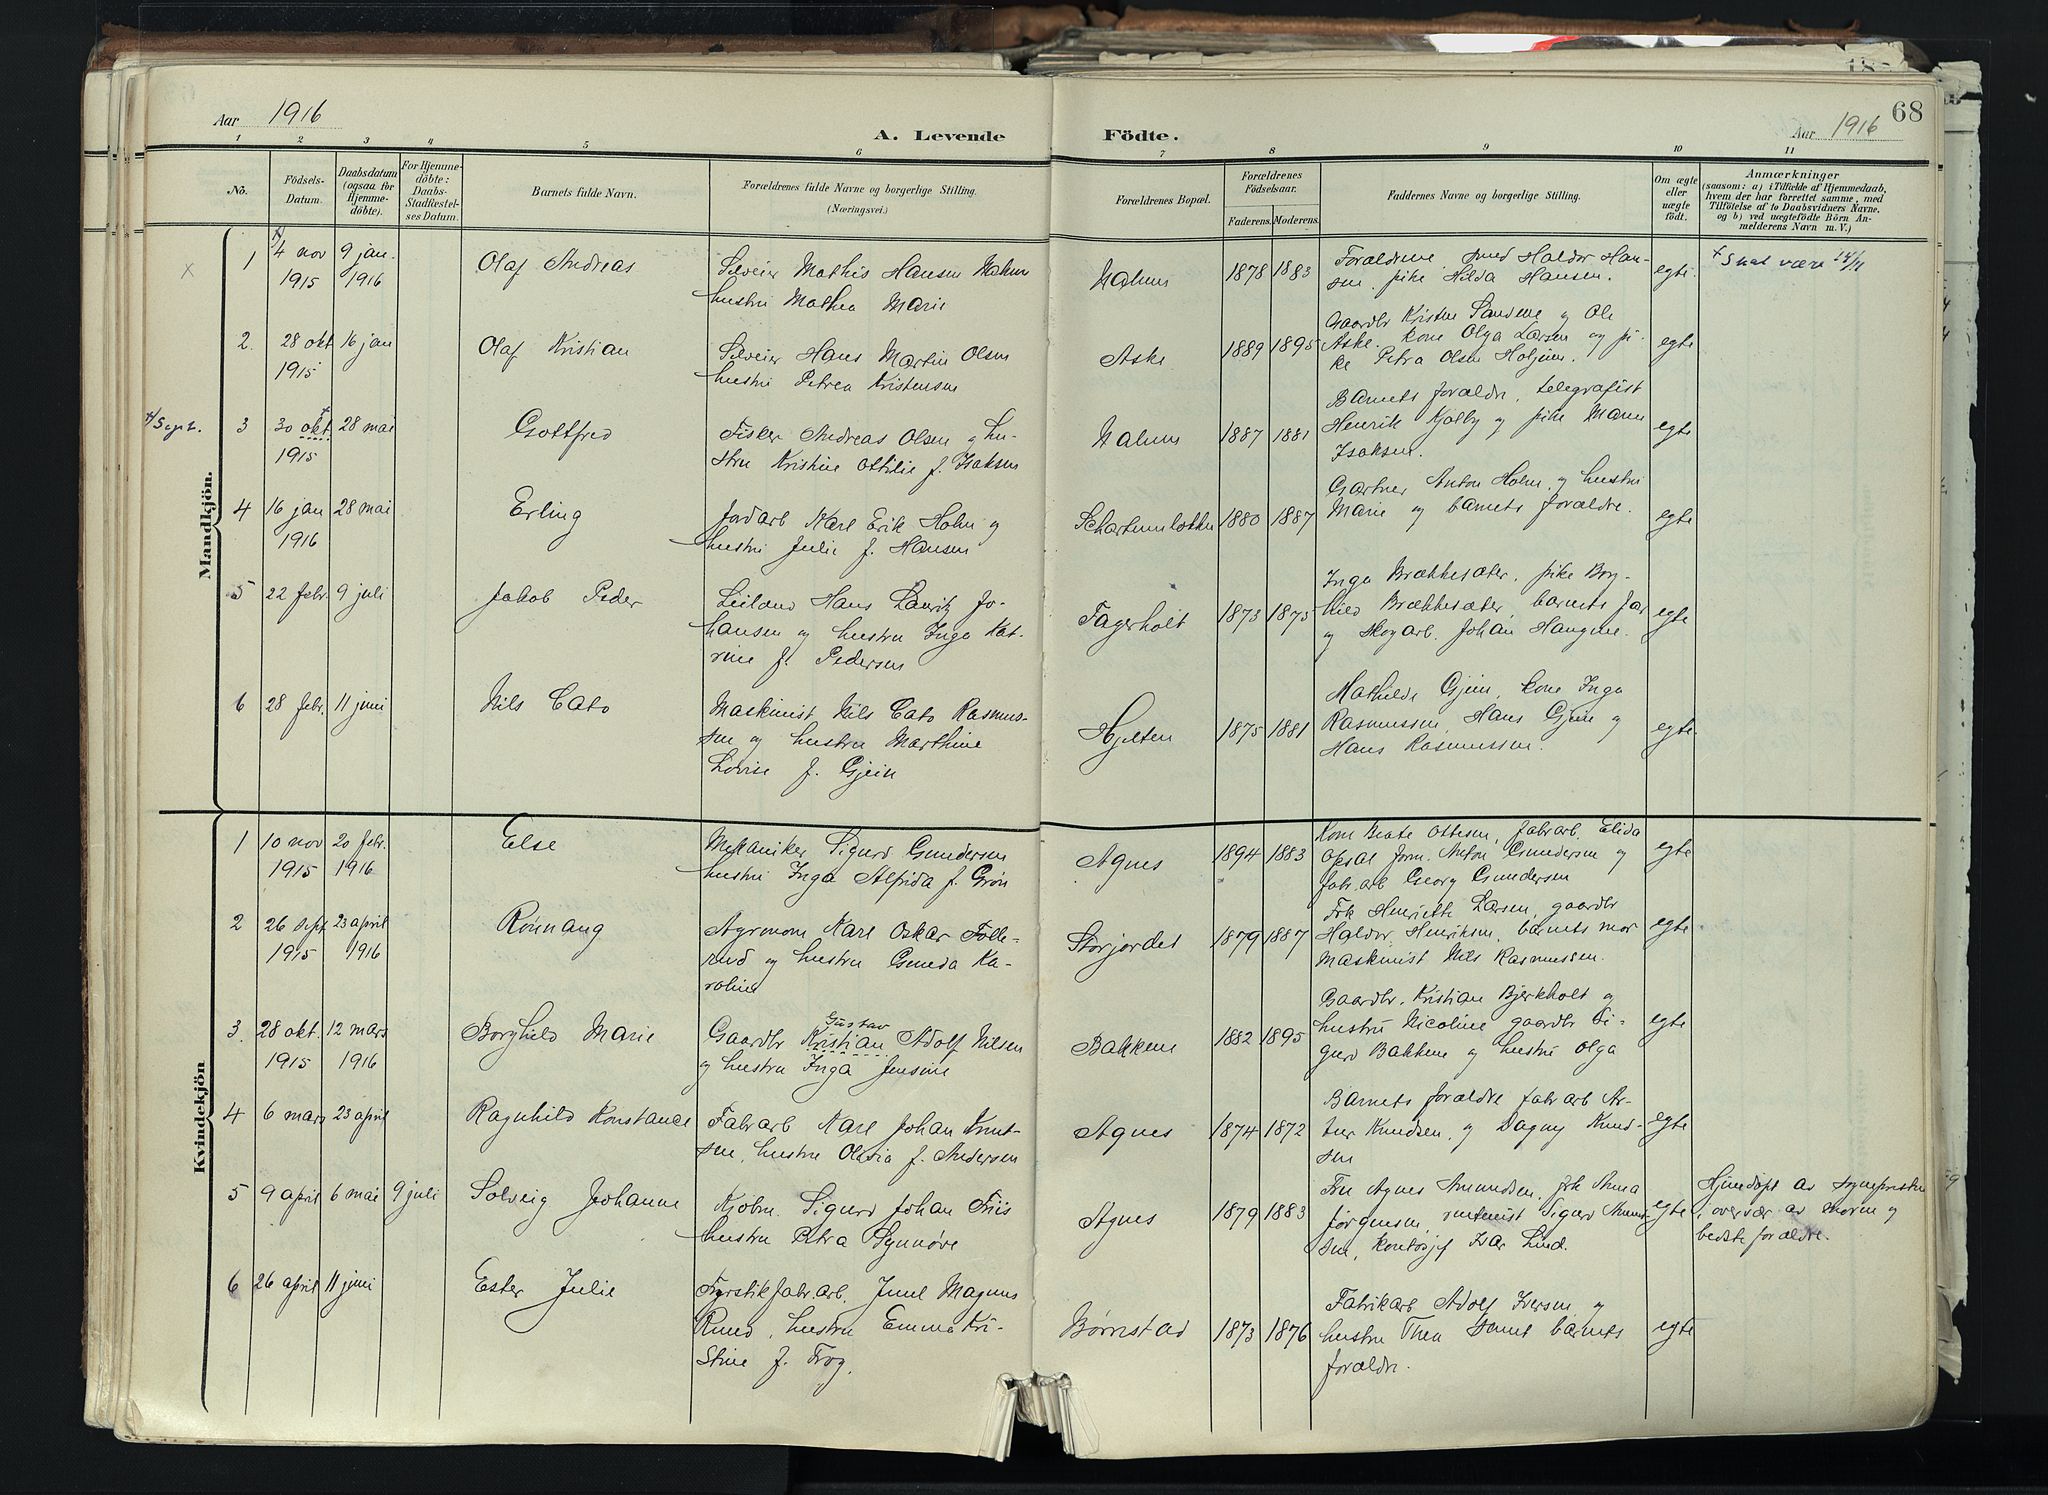 68
Aar 1916
A. Levende
Födte.
Aar 1916
1 2 3 4 5 6 7 8 9 10 11
No.
Födsels-
Datum.
Daabsdatum
(ogsaa for
Hjemme-
döbte).
For Hjemme-
döbte:
Daabs-
Stadfæstel-
ses Datum.
Barnets fulde Navn.
Forældrenes fulde Navne og borgerlige Stilling.
(Næringsvei.)
Forældrenes Bopæl.
Forældrenes
Födselsaar.
Faderens. Moderens.
Faddernes Navne og borgerlige Stilling.
Om ægte
eller
uægte
födt.
Anmærkninger
(saasom: a) i Tilfælde af Hjemmedaab,
hvem der har forrettet samme, med
Tilföielse af to Daabsvidners Navne,
og b) ved uægtefödte Börn An-
melderens Navn m. V.)
Mandkjön.
1
4 nov
1915
9 jan.
1916
Olaf Andreas
Mathis Hansen
hustru Mathea Marie
1878 1883
Forældrene, smed Haldor Han-
sen, pike Hilda Hansen.
egte
+ Skal være
2.
28 okt
1915
16 jan
Olaf Kristian
Hans Martin Olsen
hustru Petrea Kristensen
Aske
1889 1895
Gaardbr Kristen Sandene og Ole
Aske. kone Olga Larsen og pi-
ke Petra Olsen
egte
+/Sept.
3
30 okt.
1915
28 mai
Gottfred
Fisker Andreas Olsen og hu-
stru Kristine Ottilie f. Isaksen
1887 1881
Barnets forældre, telegrafist
Henrik Kjølby og pike
Isaksen.
egte
4
16 jan
1916
28 mai
Erling
Jordarb Karl Erik Holm og
hustru Julie f. Hansen
1880 1887
Gartner Anton Holm og hustru
Marie og barnets forældre.
egte
5
22 febr.
9 juli
Jakob Peder
Hans Lauritz Jo-
hansen og hustru Inga Kat-
rine f. Pedersen
Fagerholt
1873 1875
Inga Brækkesæter, pike Borg-
hild Brækkesæter, barnets far
og skogarb. Johan Haugene.
egte
6
28 febr.
11 juni
Nils Cato
Maskinist Nils Cato Rasmus-
sen og hustru Marthine
Lovise f. Gjein
Hjelten
1875 1881
Mathilde Gjein, kone Inga
Rasmussen, Hans Gjein og
Hans Rasmussen.
egte
Kvindekjön
1
10 nov
1915
20 febr.
1916
Else
Mekaniker Sigurd Gundersen
hustru Inga Alfida f. Grøn
Agnes
1894 1883
Kone Beate Ottesen, fabr.arb. Elida
Opsal, form. Anton Gundersen og
fabr.arb Georg Gundersen
egte
2
26 sept
1915
23 april
1916
Rønnaug
Agronom Karl Oskar Folle-
rud og hustru Gunda Ka-
roline
Storjordet
1879 1887
Frk Henriette Larsen, gaardbr
Haldor Henriksen, barnets mor
Maskinist Nils Rasmussen.
egte
3.
28 okt.
1915
12 mars
1916
Borghild Marie
Gustav
Gaardbr Kristian Adolf Nilsen
og hustru Inga Jensine
Bakkene
1882 1895
Gaardbr. Kristian Bjerkholt og
hustru Nicoline gaardbr Si-
gurd Bakkene og hustru Olga
egte
4
6 mars
23 april
Ragnhild Konstance
Fabr arb Karl Johan Knut-
sen, hustru Olivia f. Andersen
Agnes
1874 1872
Barnets forældre fabr arb Ar-
tur Knudsen, og Dagny Knud-
sen
egte
5
9 april
6 mai
9 juli
Solveig Johanne
Kjøbm. Sigurd Johan Friis
hustru Petra Synnøve
Agnes
1879 1883
Fru Agnes Amundsen, frk Anna
Jørgensen, Sigurd Amund-
sen, kontorsjef Ivar Lind.
egte
Hjemdøpt av sognepresten
i overvær av moren og
bedsteforældre.
6
26 april
11 juni
Ester Julie
Fyrstikfabr.arb. Juul Magnus
Ruud, hustru Emma Kri-
stine f. Frog.
Børnstad
1873 1876
Fabrikarb Adolf Iversen og
hustru Thea samt barnets
forældre.
egte